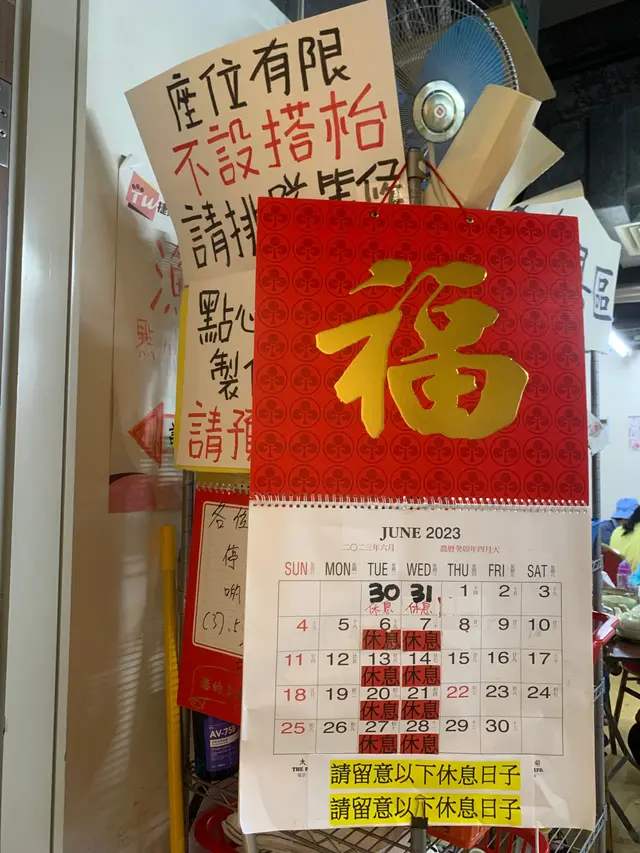 座位有限
不設搭枱
請排隊等候
點心
製
請預
各位
停
(3).
AV-75
區
福
JUNE 2023
二〇二三年六月
農曆癸卯年四月大
SUN MON TUE WED THU FRI SAT
30 31 1 2 3
休息 休息
4 5 6 7 8 9 10
休息 休息
11 12 13 14 15 16 17
休息 休息
18 19 20 21 22 23 24
休息 休息
25 26 27 28 29 30
休息 休息
請留意以下休息日子
請留意以下休息日子